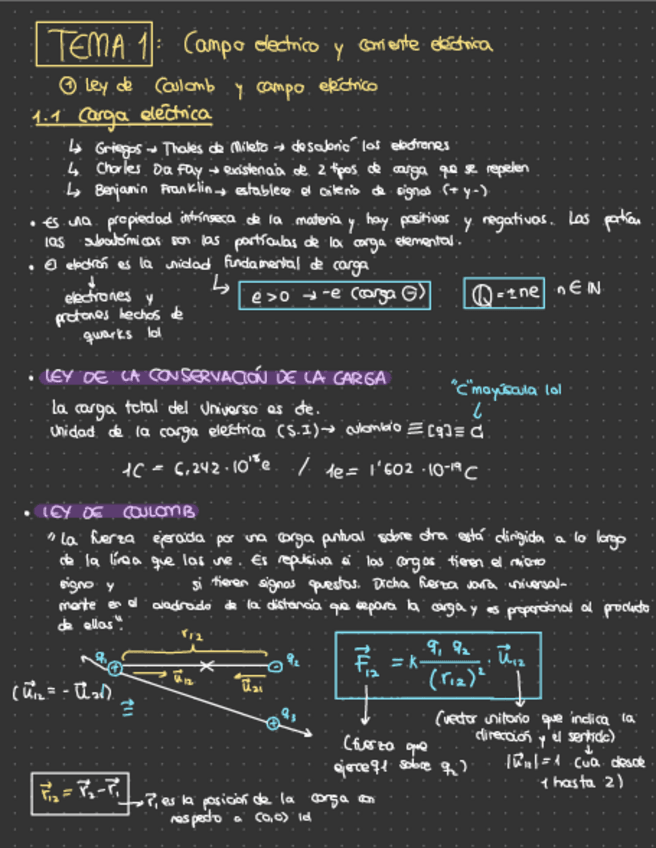 TEMA 1: Campo electrico y corriente eléctrica
① Ley de Coulomb y campo eléctrico
1.1 Carga eléctrica
↳ Griegos → Thales de Mileto → "descubrió" los electrones
↳ Charles Du Fay → existencia de 2 tipos de carga que se repelen
↳ Benjamin Franklin → establece el criterio de signos (+ y -)
• Es una propiedad intrínseca de la materia y hay positivas y negativas. Las partíc
las subatómicas son las partículas de la carga elemental.
• El electrón es la unidad fundamental de carga
↓ electrones y protones hechos de quarks lol
↳ e>0 → -e (carga ⊖)
Q = ±ne n ∈ ℕ
• LEY DE LA CONSERVACIÓN DE LA CARGA
"C" mayúscula lol
La carga total del Universo es cte.
Unidad de la carga eléctrica (S.I) → culombio ≡ [q] ≡ C
1C = 6,242·10¹⁸e / 1e = 1'602·10⁻¹⁹C
• LEY DE COULOMB
"La fuerza ejercida por una carga puntual sobre otra está dirigida a lo largo
de la línea que las une. Es repulsiva si las cargas tienen el mismo
signo y si tienen signos opuestos. Dicha fuerza varía inversal-
mente en el cuadrado de la distancia que separa la carga y es proporcional al producto
de ellas".
r₁₂
q₁ ⊕ u⃗₁₂ u⃗₂₁ ⊖ q₂
(u⃗₁₂ = - u⃗₂₁)
⊕ q₃
F⃗₁₂ = k q₁ q₂ / (r₁₂)² · u⃗₁₂
(fuerza que
ejerce q1 sobre q₂)
(vector unitario que indica la
dirección y el sentido)
|u⃗₁₂| = 1 (va desde
1 hasta 2)
r⃗₁₂ = r⃗₂ - r⃗₁
→ r⃗₁ es la posición de la carga con
respecto a (0,0) lol